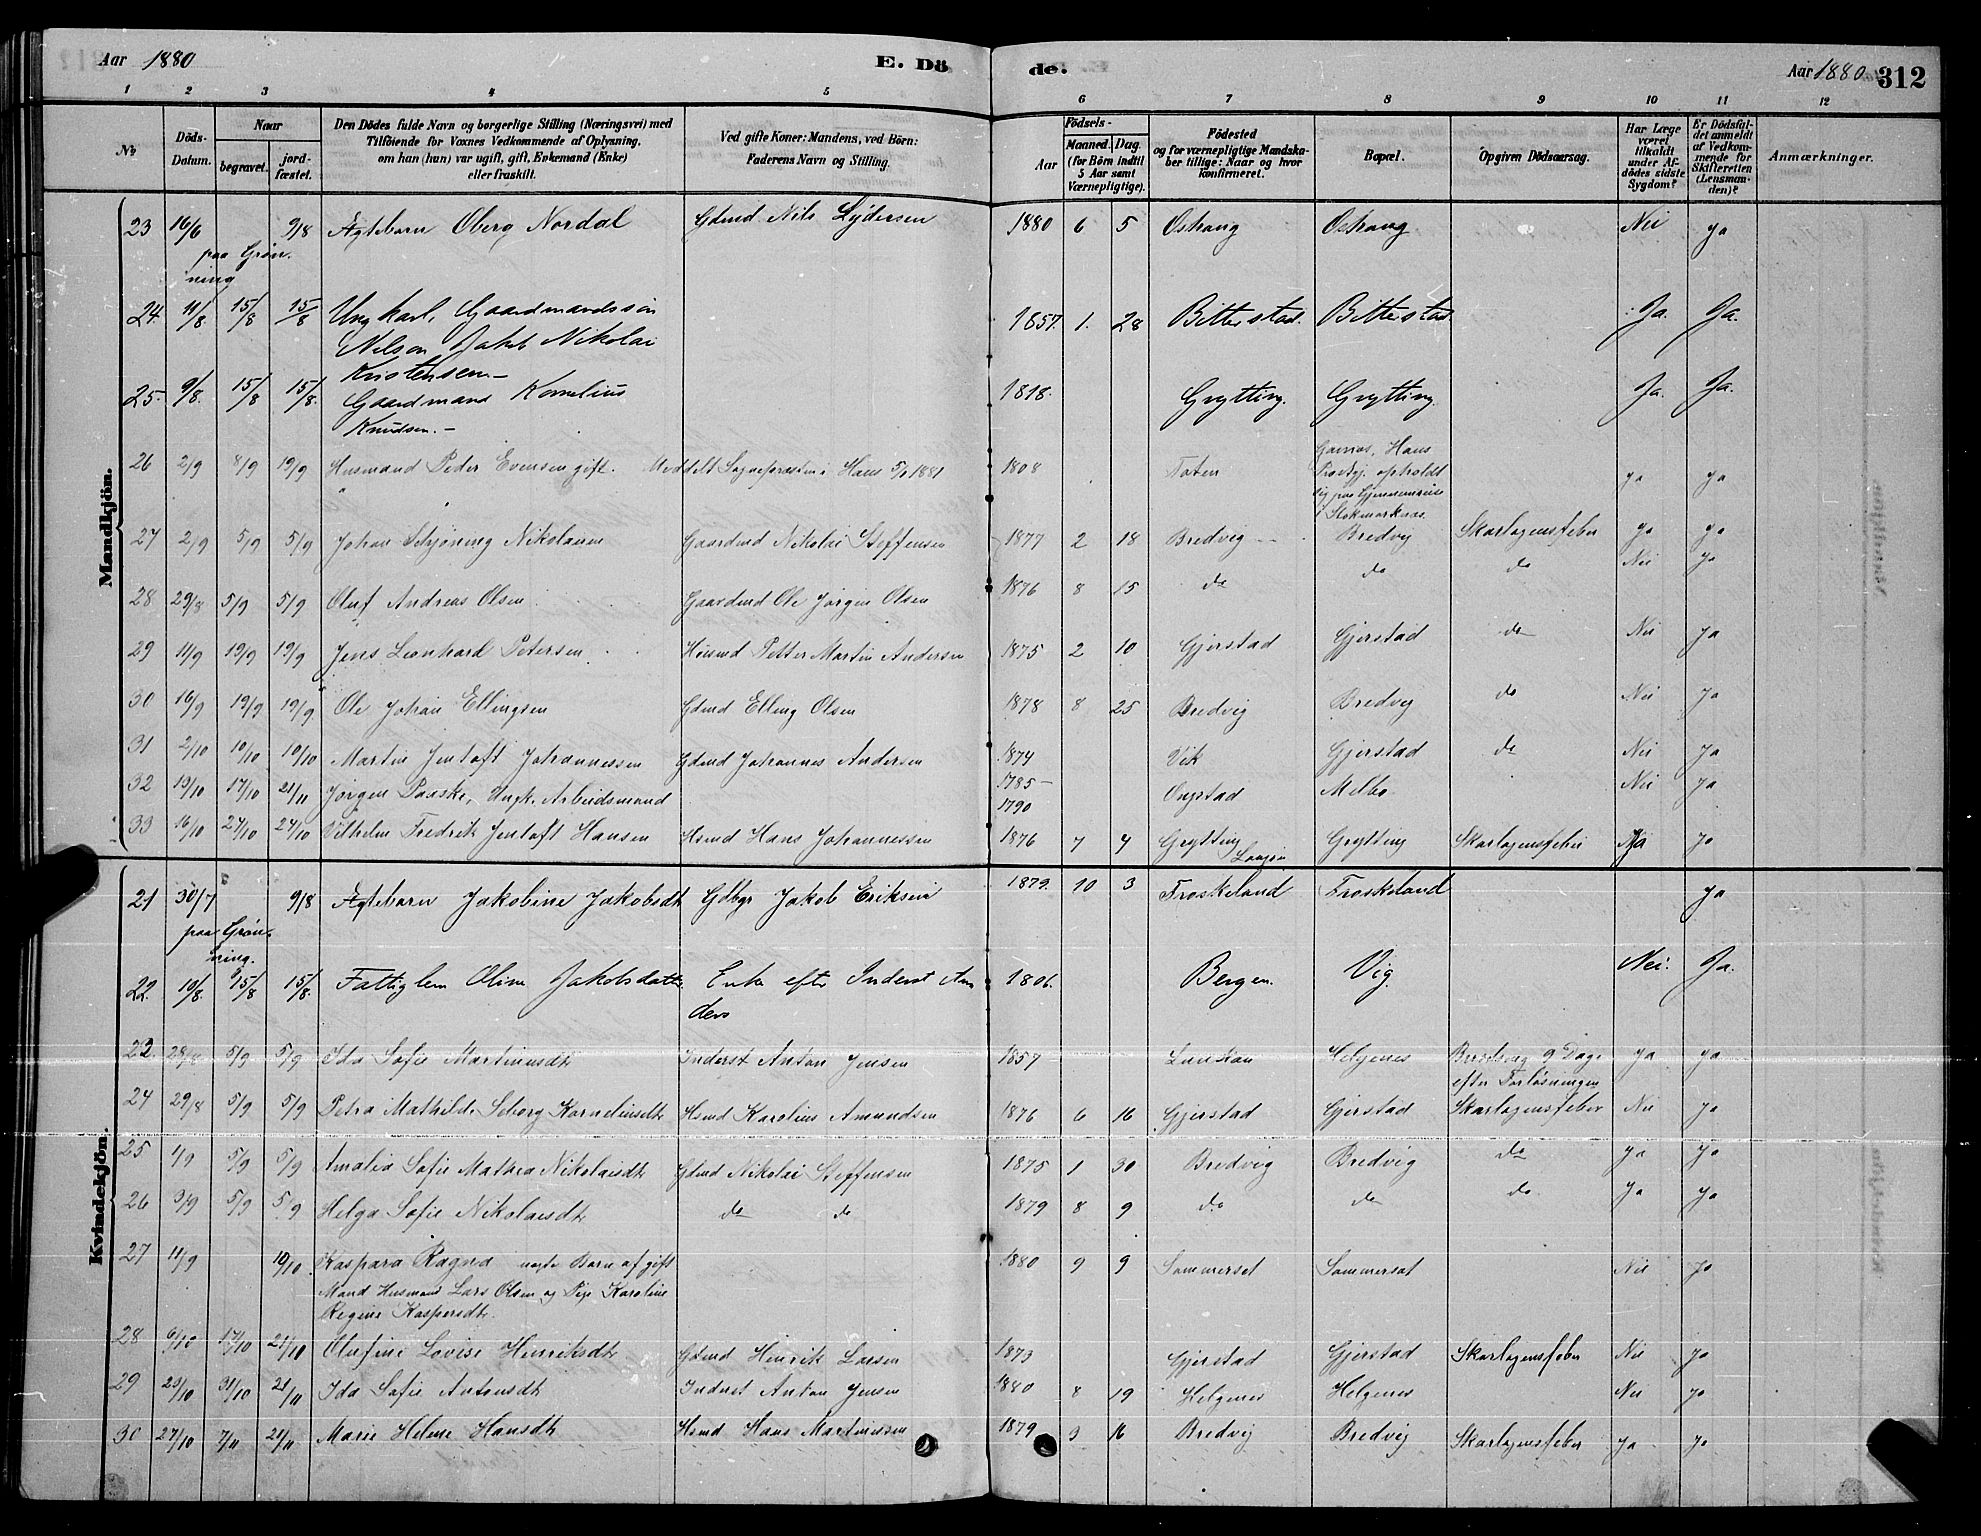 Aar 1880 E. Dö de. Aar 1880 312
1 2 3 4 5 6 7 8 9 10 11 12
No. Döds-Datum. Naar begravet. jordfæstet.
Den Dödes fulde Navn og borgerlige Stilling (Næringsvei) med
Tilföiende for Voxnes Vedkommende af Oplysning,
om han (hun) var ugift, gift, Enkemand (Enke)
eller fraskilt.
Ved gifte Koner: Mandens, ved Börn:
Faderens Navn og Stilling.
Födsels-
Aar Maaned. Dag.
(for Börn indtil
5 Aar samt
Værnepligtige).
Födested
og for værnepligtige Mandska-
ber tillige: Naar og hvor
konfirmeret.
Bopæl.
Opgiven Dödsaarsag.
Har Læge
været
tilkaldt
under Af-
dödes sidste
Sygdom?
Er Dödsfal-
det anmeldt
af Vedkom-
mende for
Skifteretten
(Lensman-
den)?
Anmærkninger.
Mandkjön.
23 16/6 9/8 Ægtebarn Oberg Nordal Gdmd Nils Lydersen 1880 6 5 Ostrang Ostrang Nei ja
paa Grøn-
ning
24. 11/8. 15/8 15/8 Ungkarl, Gaardmandssøn 1857. 1. 28 Bitterstad. Bitterstad. Ja. Ja.
Nelson Jakob Nikolai
Kristensen.-
25. 9/8. 15/8 15/8. Gaardmand Kornelius 1818. Grytting. Grytting. Ja. Ja.
Knudsen.-
26 2/9 8/9 19/9 Husmand Peder Evensen gift. Meddelt Sognepræsten i Hans 5/1 1881 1808 Toten Hans ja ja
opholdt
sig paa Gjennemreise
i Stokmarknæs
27 2/9 5/9 5/9 Johan Schjøning Nikolaisen Gaardmd Nikolai Steffensen 1877 2 18 Bredvig Bredvig Skarlagensfeber ja ja
28 29/8 5/9 5/9 Oluf Andreas Olsen Gaardmd Ole Jørgen Olsen 1876 8 15 do do do Nei ja
29 11/9 19/9 19/9 Jens Leonhard Petersen Husmd Petter Martin Andersen 1875 2 10 Gjerstad Gjerstad do Nei ja
30 16/9 19/9 19/9 Ole Johan Ellingsen Gdmd Elling Olsen 1878 8 25 Bredvig Bredvig do Nei ja
31 2/10 10/10 10/10 Martin Jentoft Johannessen Gdmd Johannes Andersen 1874 Vik Gjerstad do Nei ja
32 13/10 17/10 21/11 Jørgen Paaske, Ungk. Arbeidsmand 1785-1790 Ongstad Melbo Nei ja
33 16/10 24/10 24/10 Vilhelm Fredrik Jentoft Hansen Hsmd Hans Johannessen 1876 7 4 Grytting Grytting Skarlagensfeber Ja ja
Kvindekjön.
21 30/7 9/8 Ægtebarn Jakobine Jakobsdt Gdbgr Jakob Eriksen 1879. 10 3 Froskeland Froskeland ja
paa Grøn-
ning.
22. 10/8. 15/8 15/8. Fattiglem Oline Jakobsdatter. Enke efter Inderst An 1806. Bergen. Vig. Nei. Ja.
ders
23. 28/8 5/9 5/9 Ida Sofie Martinusdt Inderst Anton Jensen 1857 Helgenes 9 Dage ja ja
efter Forløsningen
24 29/8 5/9 5/9 Petra Mathilde Seborg Korneliusdt Hsmd Karolius Amundsen 1876 6 16 Gjerstad Gjerstad Skarlagensfeber Nei ja
25 1/9 5/9 5/9 Amalia Sofie Mathea Nikolaisdt Gdmd Nikolai Steffensen 1875 1 30 Bredvig Bredvig do ja ja
26 3/9 5/9 5/9 Helga Sofie Nikolaisdt do do 1879 8 9 do do do ja ja
27 11/9 10/10 Kaspara Ragna uægte Barn af gift 1880 9 9 Sommerset Sommerset Nei ja
Mand Husmand Lars Olsen og Pige Karoline
Regine Kaspersdt.
28 6/10 17/10 21/10 Olufine Lovise Henriksdt Gdmd Henrik Larsen 1873 Gjerstad Gjerstad Skarlagensfeber Nei ja
29 23/10 31/10 21/11 Ida Sofie Antonsdt Inderst Anton Jensen 1880 8 19 Helgenes Helgenes Nei ja
30 27/10 7/11 21/11 Marie Helene Hansdt Hsmd Hans Martinussen 1879 3 16 Bredvig Bredvig Skarlagensfeber ja ja